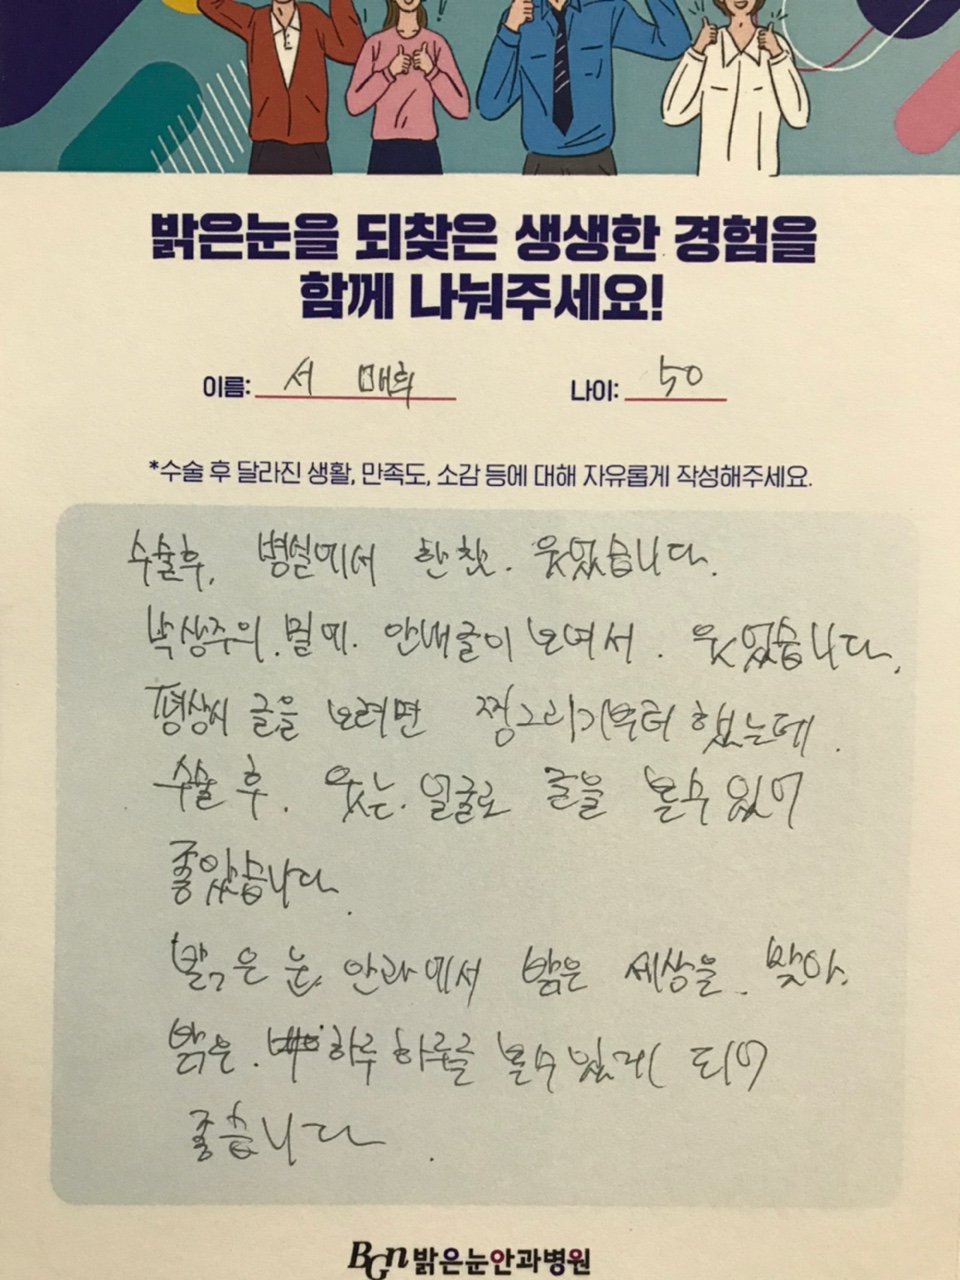 밝은눈을 되찾은 생생한 경험을
함께 나눠주세요!
이름: 서 매희 나이: 50
*수술 후 달라진 생활, 만족도, 소감 등에 대해 자유롭게 작성해주세요.
수술후, 병실에서 한참. 웃었습니다.
박상주의. 밑에. 안내글이 보여서. 웃었습니다.
평상시 글을 보려면 찡그리기부터 했는데.
수술 후. 웃는. 얼굴로 글을 볼수 있어
좋았습니다.
밝은 눈 안과에서 밝은 세상을. 맞아.
밝은. 하루 하루를 볼수 있게 되어
좋습니다.
BGN 밝은눈안과병원